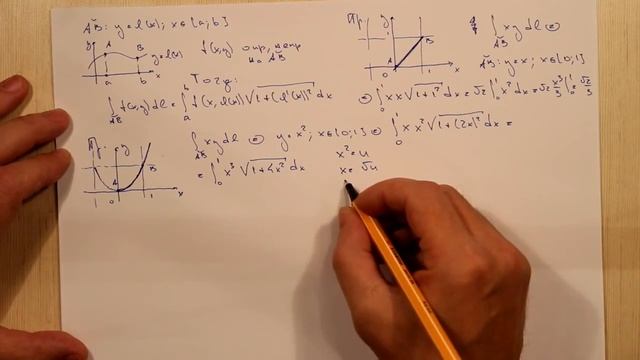 AB̆: y=φ(x); x∈[a;b]
y
A
B
y=φ(x)
0
a
b
x
f(x,y) опр, непр
на AB̆
Тогда:
∫_{AB̆} f(x,y)dl = ∫_a^b f(x,φ(x))√(1+(φ'(x))²) dx
Пр.
1
B
A
0
1
x
∫_{AB̆} xy dl ⊜
AB̆: y=x; x∈[0;1]
⊜ ∫_0^1 x x √(1+1²) dx = √2 ∫_0^1 x² dx = √2 x³/3 |_0^1 = √2/3
y
B
A
0
1
x
∫_{AB̆} xy dl ⊜ y=x²; x∈[0;1] ⊜ ∫_0^1 x x² √(1+(2x)²) dx =
= ∫_0^1 x³ √(1+4x²) dx
x²=u
x=√u